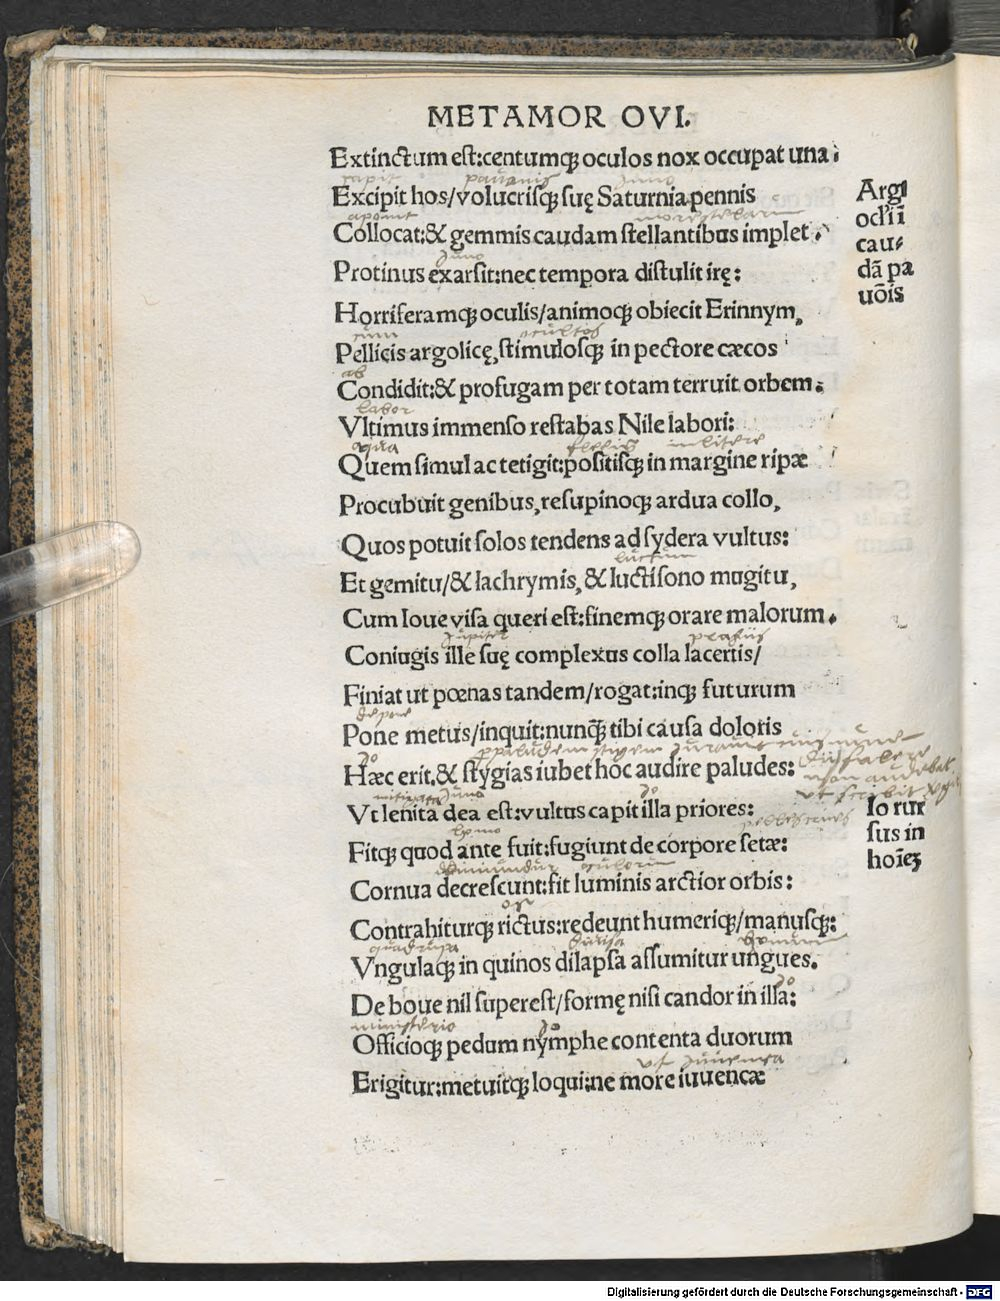 METAMOR OVI.
Extinctum est:centumqꝫ oculos nox occupat una:
capit pauonis Juno
Excipit hos/volucrisqꝫ suę Saturnia pennis
Collocat:& gemmis caudam stellantibus implet.
Juno
Protinus exarsit:nec tempora distulit irę:
Horriferamqꝫ oculis/animoqꝫ obiecit Erinnym,
cum ocultos
Pellicis argolicę,stimulosqꝫ in pectore cæcos
Condidit:& profugam per totam terruit orbem:
labor
Vltimus immenso restabas Nile labori:
Quem simul ac tetigit:positisqꝫ in margine ripæ
Procubuit genibus,resupinoqꝫ ardua collo,
Quos potuit solos tendens ad sydera vultus:
Et gemitu/& lachrymis,& luctisono mugitu,
Cum Ioue visa queri est:finemqꝫ orare malorum.
Jupiter
Coniugis ille suę complexus colla lacertis/
Finiat ut pœnas tandem/rogat:inqꝫ futurum
Pone metus/inquit:nunq̃ tibi causa doloris
Hæc erit,& stygias iubet hoc audire paludes:
mitigata Juno Jo
Vt lenita dea est:vultus capit illa priores:
Fitqꝫ quod ante fuit:fugiunt de corpore setæ:
Cornua decrescunt:fit luminis arctior orbis:
Contrahiturqꝫ rictus:redeunt humeriqꝫ/manusqꝫ:
diuisa
Vngulaqꝫ in quinos dilapsa assumitur ungues.
Jo
De boue nil superest/formę nisi candor in illa:
ministerio Jo
Officioqꝫ pedum nymphe contenta duorum
ut Juuenca
Erigitur:metuitqꝫ loqui:ne more iuuencæ
Argi
oclĩ ĩ
cau-
dã pa
uõis
Io rur
sus in
hoĩeꝫ
Digitalisierung gefördert durch die Deutsche Forschungsgemeinschaft - DFG